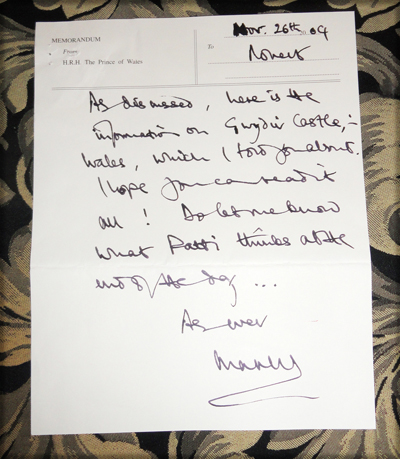 MEMORANDUM
From
H.R.H. The Prince of Wales
Nov. 26th 09
To Robert
As discussed, here is the
information on Gwydir Castle, in
Wales, which I told you about.
I hope you can read it
all! Do let me know
what Patti thinks at the
end of the day ...
As ever